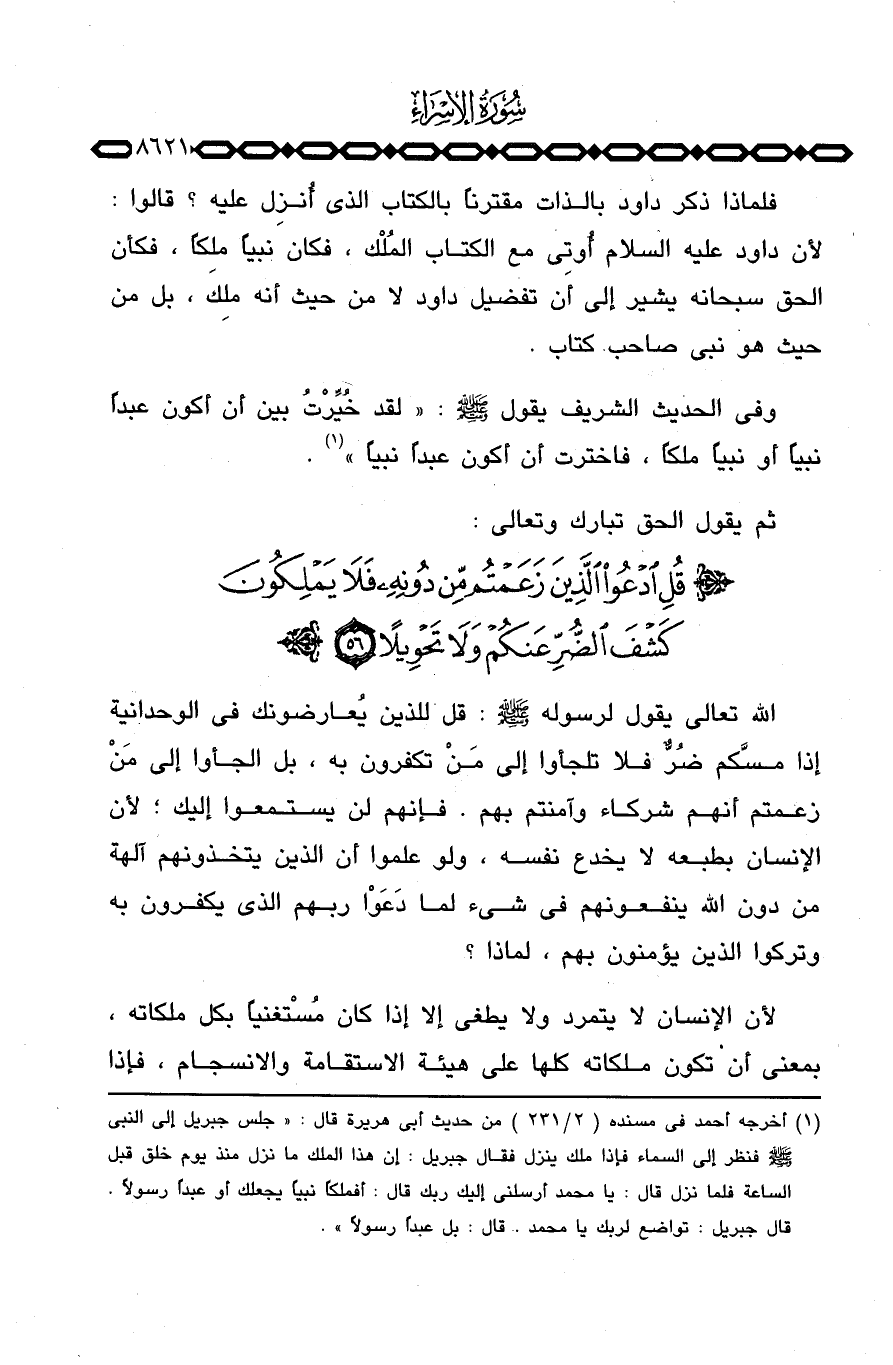 سُورَةُ الإِسْرَاءِ
٨٦٢١
فلماذا ذكر داود بالذات مقترناً بالكتاب الذى أُنزِل عليه ؟ قالوا :
لأن داود عليه السلام أُوتِى مع الكتاب المُلْك ، فكان نبياً ملِكاً ، فكأن
الحق سبحانه يشير إلى أن تفضيل داود لا من حيث أنه ملِك ، بل من
حيث هو نبى صاحب كتاب .
وفى الحديث الشريف يقول ﷺ : « لقد خُيِّرْتُ بين أن أكون عبداً
نبياً أو نبياً ملكاً ، فاخترت أن أكون عبداً نبياً »(١) .
ثم يقول الحق تبارك وتعالى :
﴿ قُلِ ٱدْعُوا۟ ٱلَّذِينَ زَعَمْتُم مِّن دُونِهِۦ فَلَا يَمْلِكُونَ
كَشْفَ ٱلضُّرِّ عَنكُمْ وَلَا تَحْوِيلًا ٥٦ ﴾
الله تعالى يقول لرسوله ﷺ : قل للذين يُعارضونك فى الوحدانية
إذا مسَّكم ضُرٌّ فلا تلجأوا إلى مَنْ تكفرون به ، بل الجأوا إلى مَنْ
زعمتم أنهم شركاء وآمنتم بهم . فإنهم لن يستمعوا إليك ؛ لأن
الإنسان بطبعه لا يخدع نفسه ، ولو علموا أن الذين يتخذونهم آلهة
من دون الله ينفعونهم فى شىء لما دَعَوْا ربهم الذى يكفرون به
وتركوا الذين يؤمنون بهم ، لماذا ؟
لأن الإنسان لا يتمرد ولا يطغى إلا إذا كان مُسْتغنياً بكل ملكاته ،
بمعنى أن تكون ملكاته كلها على هيئة الاستقامة والانسجام ، فإذا
(١) أخرجه أحمد فى مسنده ( ٢٣١/٢ ) من حديث أبى هريرة قال : « جلس جبريل إلى النبى
ﷺ فنظر إلى السماء فإذا ملك ينزل فقال جبريل : إن هذا الملك ما نزل منذ يوم خلق قبل
الساعة فلما نزل قال : يا محمد أرسلنى إليك ربك قال : أفملكاً نبياً يجعلك أو عبداً رسولاً .
قال جبريل : تواضع لربك يا محمد .. قال : بل عبداً رسولاً » .